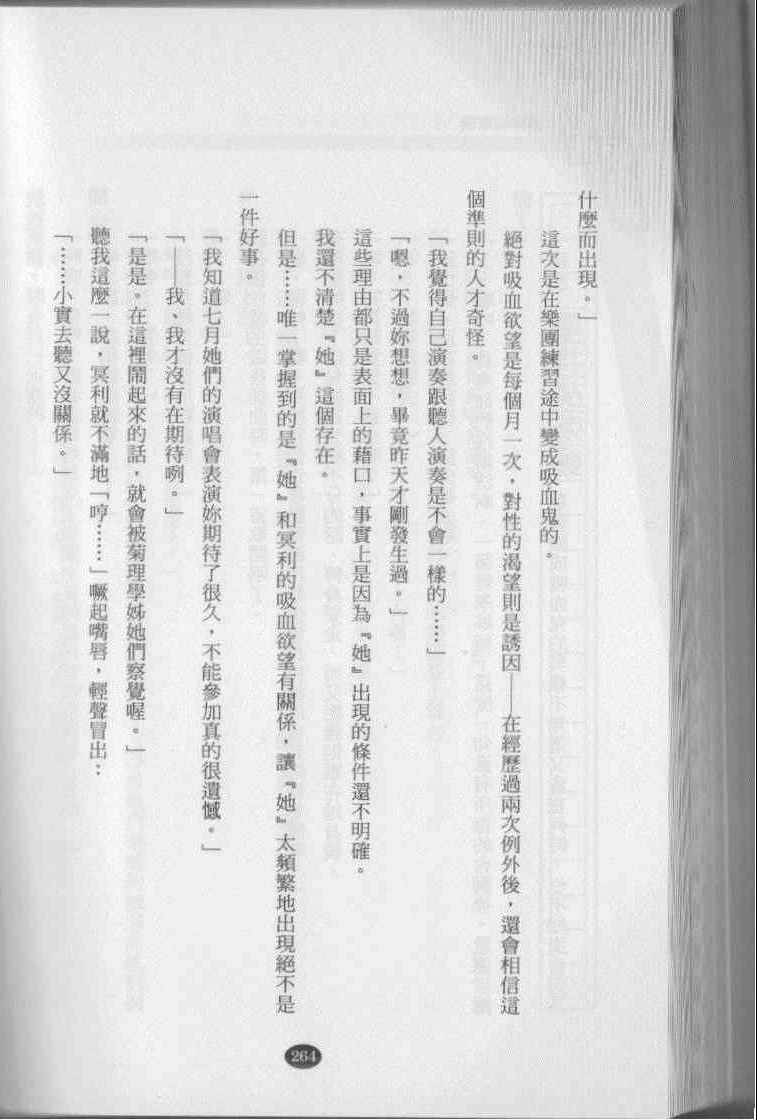 什麼而出現。」
這次是在樂團練習途中變成吸血鬼的。
絕對吸血欲望是每個月一次，對性的渴望則是誘因——在經歷過兩次例外後，還會相信這
個準則的人才奇怪。
「我覺得自己演奏跟聽人演奏是不會一樣的……」
「嗯，不過妳想想，畢竟昨天才剛發生過。」
這些理由都只是表面上的藉口，事實上是因為『她』出現的條件還不明確。
我還不清楚『她』這個存在。
但是……唯一掌握到的是『她』和冥利的吸血欲望有關係，讓『她』太頻繁地出現絕不是
一件好事。
「我知道七月她們的演唱會表演妳期待了很久，不能參加真的很遺憾。」
「——我、我才沒有在期待咧。」
「是是。在這裡鬧起來的話，就會被菊理學姊她們察覺喔。」
聽我這麼一說，冥利就不滿地「哼……」噘起嘴唇，輕聲冒出：
「……小實去聽又沒關係。」
264